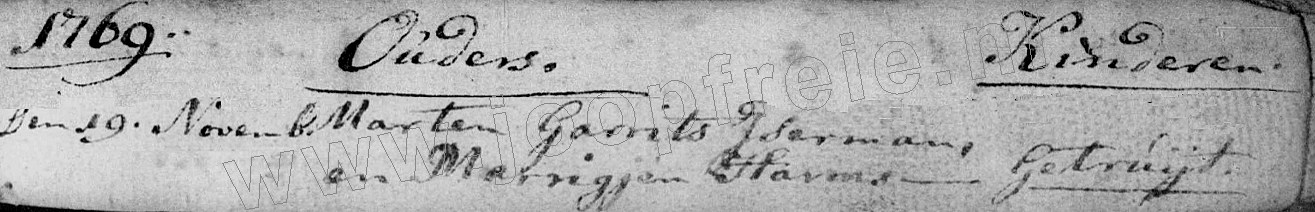 1769. Ouders. Kinderen.
Den 19. Novemb. Marten Garrits IJserman,
en Merrigjen Harms Getruijt.
www.joopfreie.nl